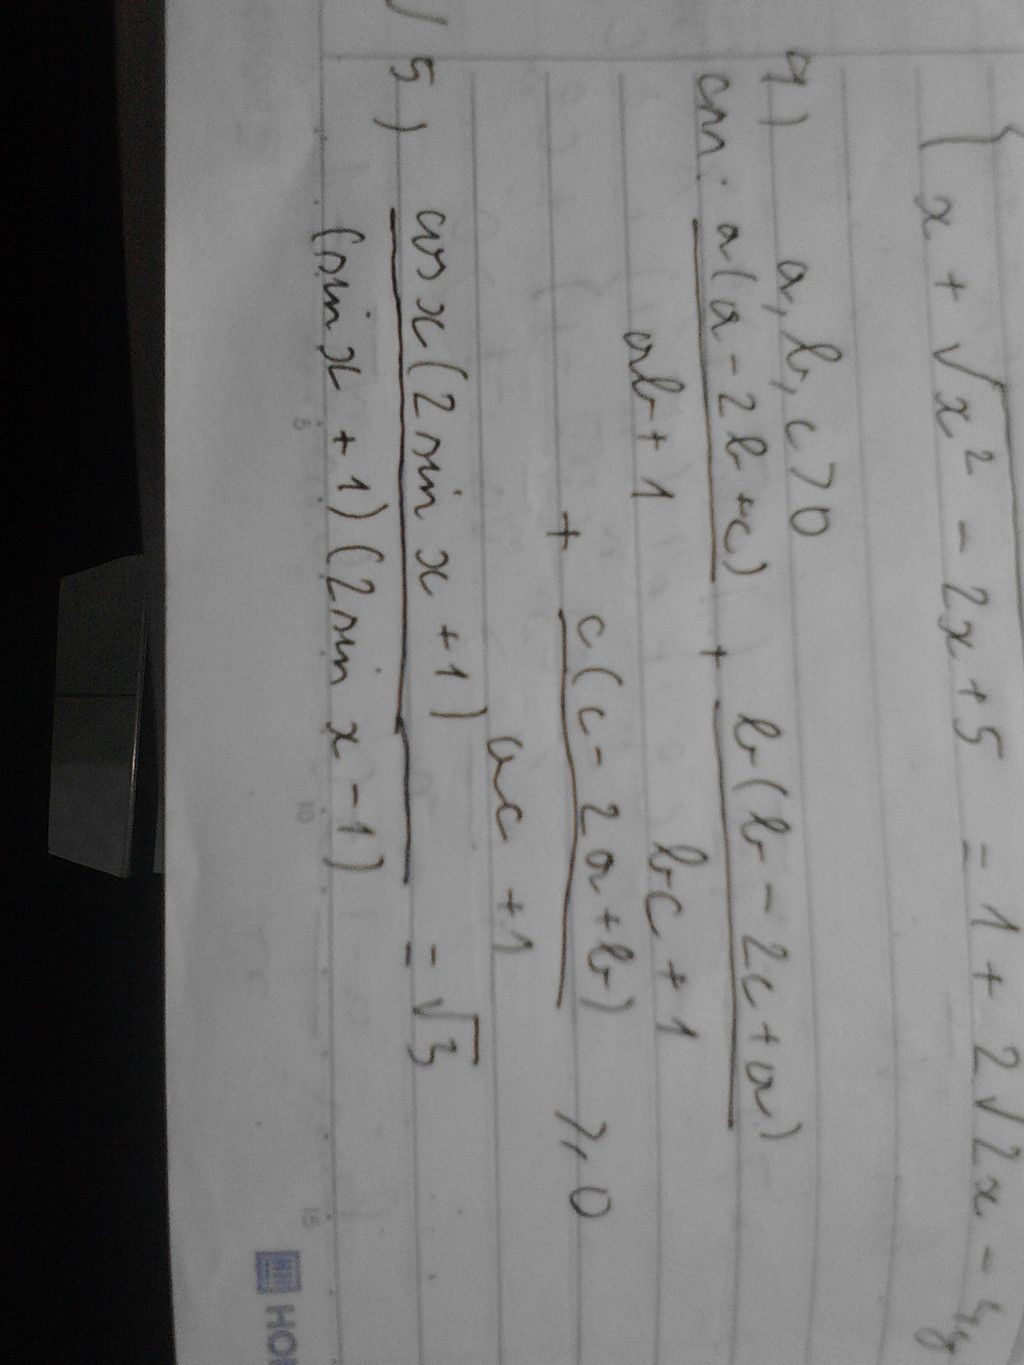 x + √x² - 2x + 5 = 1 + 2√2x -
4) a, b, c > 0
cm: a(a - 2b + c) / ab + 1 + b(b - 2c + a) / bc + 1
+ c(c - 2a + b) / ac + 1 ≥ 0
5) cos x (2 sin x + 1) / (sin x + 1)(2 sin x - 1) = √3
5 10 15
HO